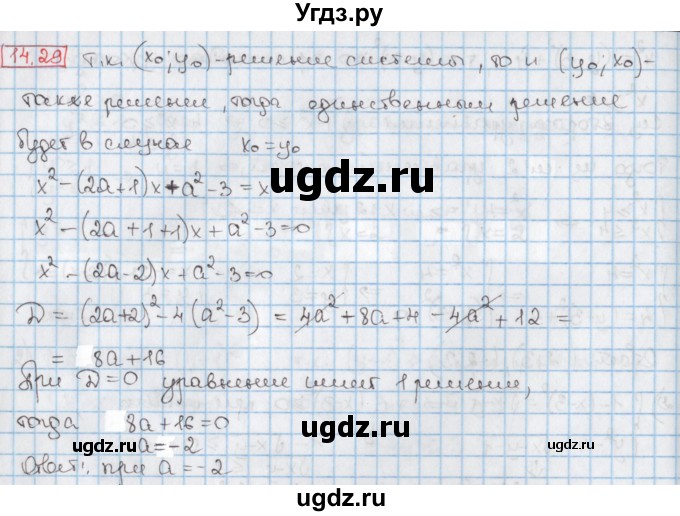 Угдз.ру
14.29 т.к. (x₀; y₀) - решение системы, то и (y₀; x₀) -
также решением, тогда единственным решение
будет в случае x₀ = y₀
x² - (2a+1)x + a² - 3 = x
ugdz.ru ugdz.ru
x² - (2a + 1 + 1)x + a² - 3 = 0
x² - (2a - 2)x + a² - 3 = 0
Д = (2a+2)² - 4(a² - 3) = 4a² + 8a + 4 - 4a² + 12 =
= 8a + 16
При Д = 0 уравнение имеет 1 решение,
тогда 8a + 16 = 0
ugdz.ru ugdz.ru
a = -2
Ответ: при a = -2
ugdz.ru